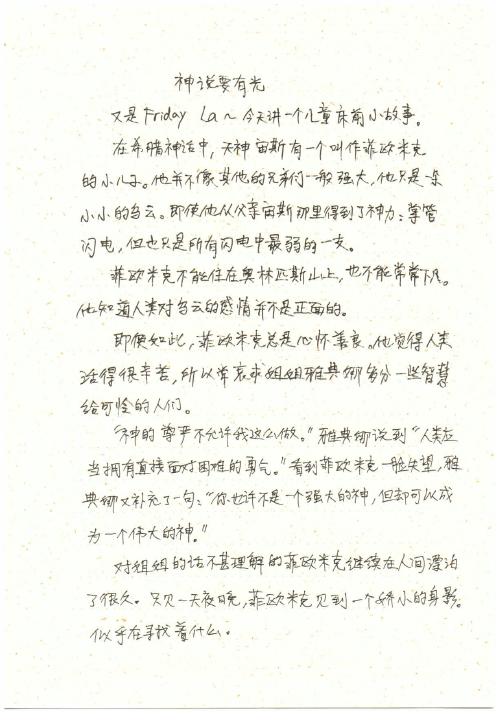 神说要有光
又是Friday La~ 今天讲一个儿童床前小故事。
在希腊神话中，天神宙斯有一个叫作菲欧米克
的小儿子。他并不像其他的兄弟们一般强大，他只是一朵
小小的乌云。即使他从父亲宙斯那里得到了神力：掌管
闪电，但也只是所有闪电中最弱的一支。
菲欧米克不能住在奥林匹斯山上，也不能常常下凡。
他知道人类对乌云的感情并不是正面的。
即使如此，菲欧米克总是心怀善良。他觉得人类
活得很辛苦，所以常哀求姐姐雅典娜多分一些智慧
给可怜的人们。
“神的尊严不允许我这么做。”雅典娜说到“人类应
当拥有直接面对困难的勇气。”看到菲欧米克一脸失望，雅
典娜又补充了一句：“你也许不是一个强大的神，但却可以成
为一个伟大的神。”
对姐姐的话不甚理解的菲欧米克继续在人间漂泊
了很久。只见一天夜晚，菲欧米克见到一个娇小的身影。
似乎在寻找着什么。